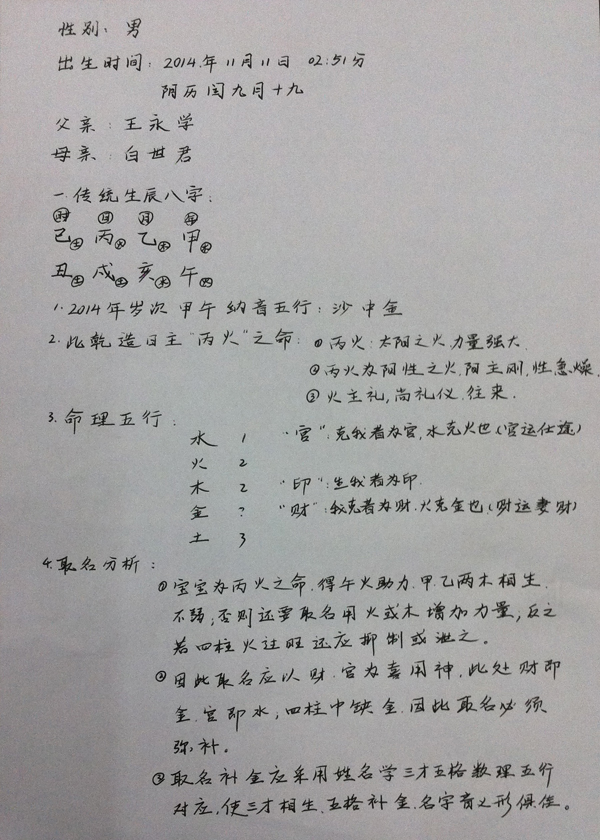 性别：男
出生时间：2014.年11月11日 02:51分
阴历闰九月十九
父亲：王永学
母亲：白世君
一.传统生辰八字：
时 日 月 年
己土 丙火 乙木 甲木
丑土 戌土 亥水 午火
1.2014年岁次 甲午 纳音五行：沙中金
2.此乾造日主“丙火”之命：①丙火：太阳之火.力量强大.
②丙火为阳性之火.阳主刚,性急燥.
③火主礼,尚礼仪.往来.
3.命理五行：
水 1 “官”：克我者为官,水克火也(官运仕途)
火 2
木 2 “印”：生我者为印.
金 ? “财”：我克者为财.火克金也.(财运妻财)
土 3
4.取名分析：
①宝宝为丙火之命.得午火助力.甲.乙两木相生.
不弱;否则还要取名用火或木增加力量;反之
若四柱火过旺还应抑制或泄之。
②因此取名应以财.官为喜用神.此处财即
金.官即水;四柱中缺金.因此取名必须
弥补。
③取名补金应采用姓名学三才五格数理五行
对应,使三才相生.五格补金.名字音义形俱佳。